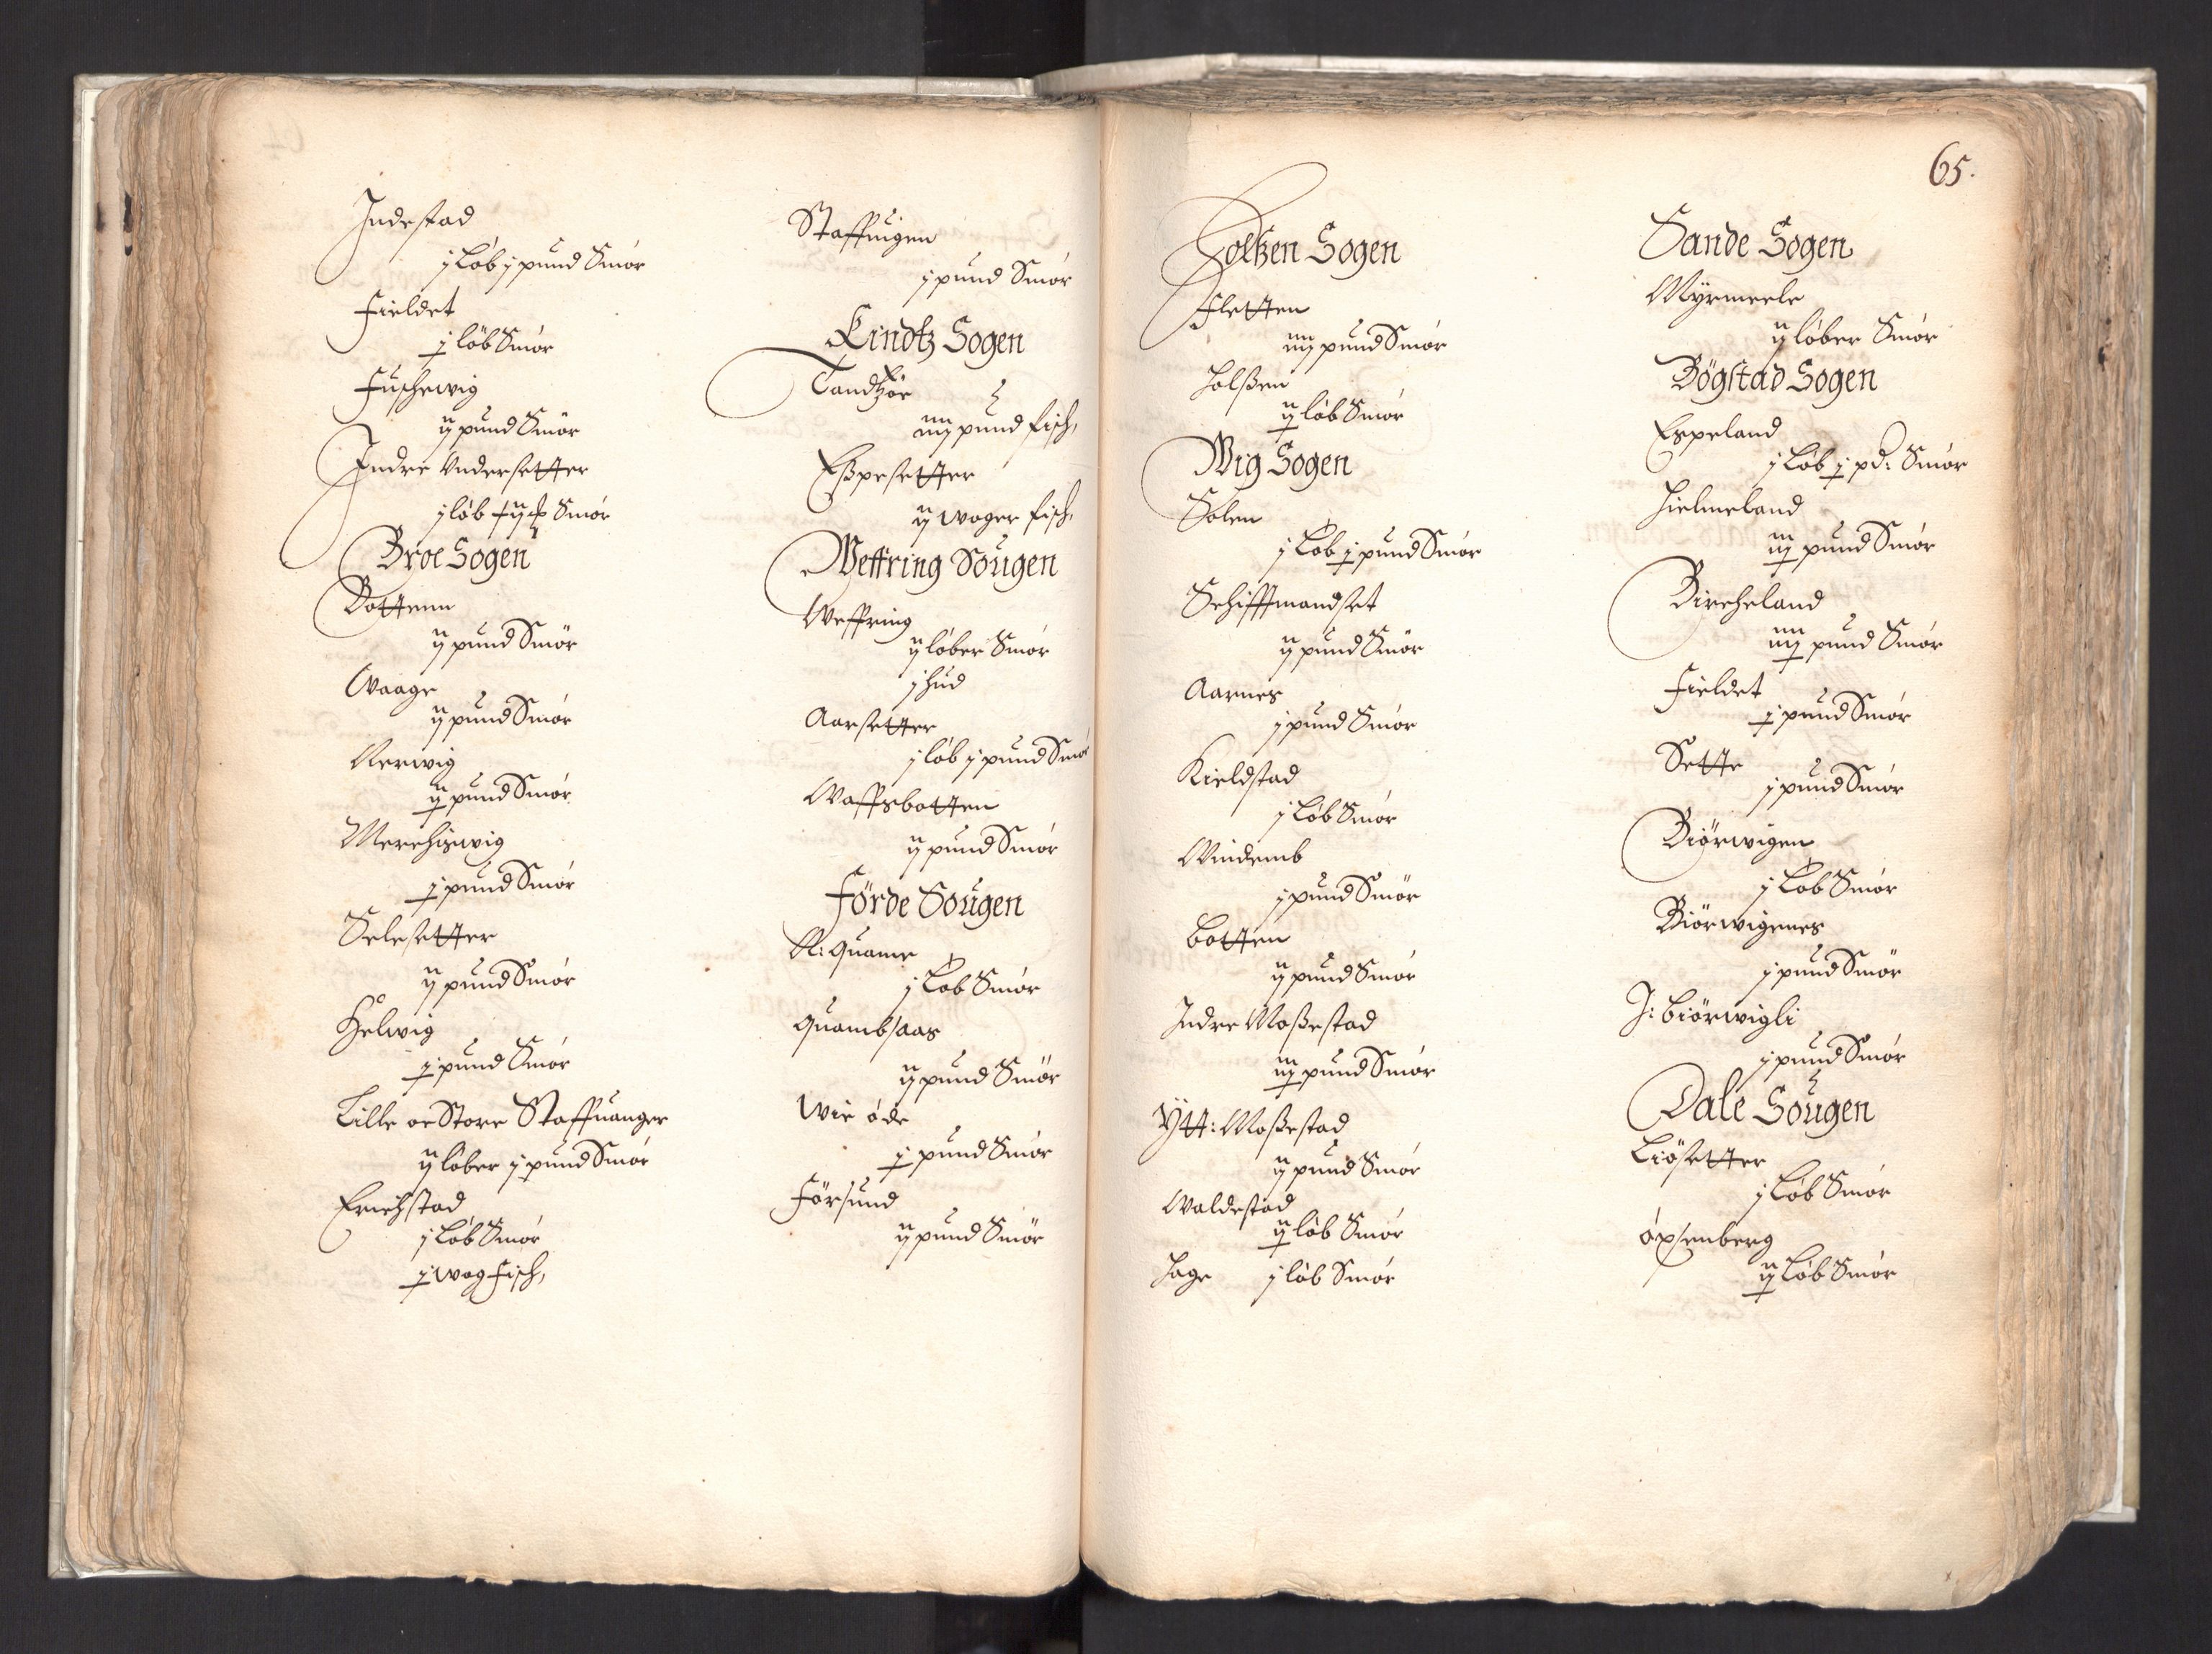 Indrestad
j Løb j pund Smør
Fieldet
j løb Smør
Fuschewig
ij pund Smør
Indre Vndersetter
j løb Smør
Broe Sogen
Bottenn
ij pund Smør
Waage
ij pund Smør
Nerwig
ij pund Smør
Merchiswig
j pund Smør
Selesetter
ij pund Smør
Helwig
j pund Smør
Lille oc Store Staffuanger
ij løber j pund Smør
Erichstad
j Løb Smør
j wog Fisch,
Staffuigen
j pund Smør
Eindtz Sogen
Tandtzør
iiij pund fisch,
Esspesetter
ij woger fisch,
Weffring Sougen
Weffring
ij løber Smør
j hud
Aarsetter
j løb j pund Smør
Waffsbotten
ij pund Smør
Förde Sougen
N: Quame
j Løb Smør
Quambsaas
ij pund Smør
Wie øde
j pund Smør
Försund
ij pund Smør
65.
Holtzen Sogen
Fletten
iiij pund Smør
Holssen
ij løb Smør
Wig Sogen
Solem
j Løb j pund Smør
Schiffmandset
ij pund Smør
Aarnes
j pund Smør
Kieldstad
j Løb Smør
Windemb
j pund Smør
Botten
ij pund Smør
Indre Mossestad
iij pund Smør
Ytt: Mossestad
ij pund Smør
Waldestad
ij løb Smør
Hage j løb Smør
Sande Sogen
Myrmeele
ij løber Smør
Bögstad Sogen
Espeland
j Løb j pd: Smør
Hielmeland
iij pund Smør
Bircheland
iiij pund Smør
Fieldet
j pund Smør
Sette
j pund Smør
Biörwigen
j Løb Smør
Biörwigenes
j pund Smør
I: Biörwigli
j pund Smør
Dale Sougen
Liösetter
j Løb Smør
Oxsenberg
ij Løb Smør